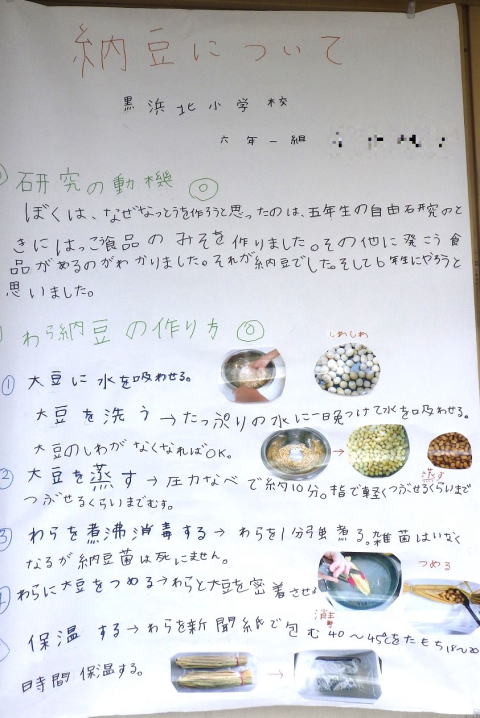 納豆について
黒浜北小学校
六年一組
研究の動機 ◎
ぼくは、なぜなっとうを作ろうと思ったのは、五年生の自由研究のと
きにはっこう食品のみそを作りました。その他に発こう食
品があるのがわかりました。それが納豆でした。そして6年生にやろうと
思いました。
わら納豆の作り方 ◎
しわしわ
① 大豆に水を吸わせる。
大豆を洗う→たっぷりの水に一晩つけて水を吸わせる。
大豆のしわがなくなればOK。
→
蒸す
② 大豆を蒸す→圧力なべで約10分。指で軽くつぶせるくらいまで
つぶせるくらいまでむす。
③ わらを煮沸消毒する→わらを1分弱煮る。雑菌はいなく
なるが納豆菌は死にません。
つめる
わらに大豆をつめる→わらと大豆を密着させる
消毒
保温する→わらを新聞紙で包む40～45℃をたもち18～20
時間保温する。
→